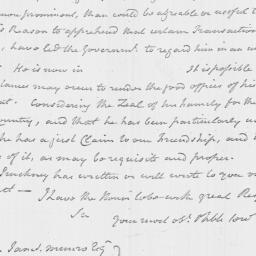 more promissory, than would be agreeable or useful to
is Reason to apprehend that certain Transactions
, have led the Government to regard him in an un
He is now in It is possible
stances may occur to render the good offices of his
at. Considering the Zeal of his family for the
ountry, and that he has been particularly un
he has a just Claim to our Friendship, and
s of it, as may be requisite and proper.
Pinckney has written or will write to you on
ct— I have the Honor to be with great Res
Sir your most obt. & hble serv
James Monroe Esqr